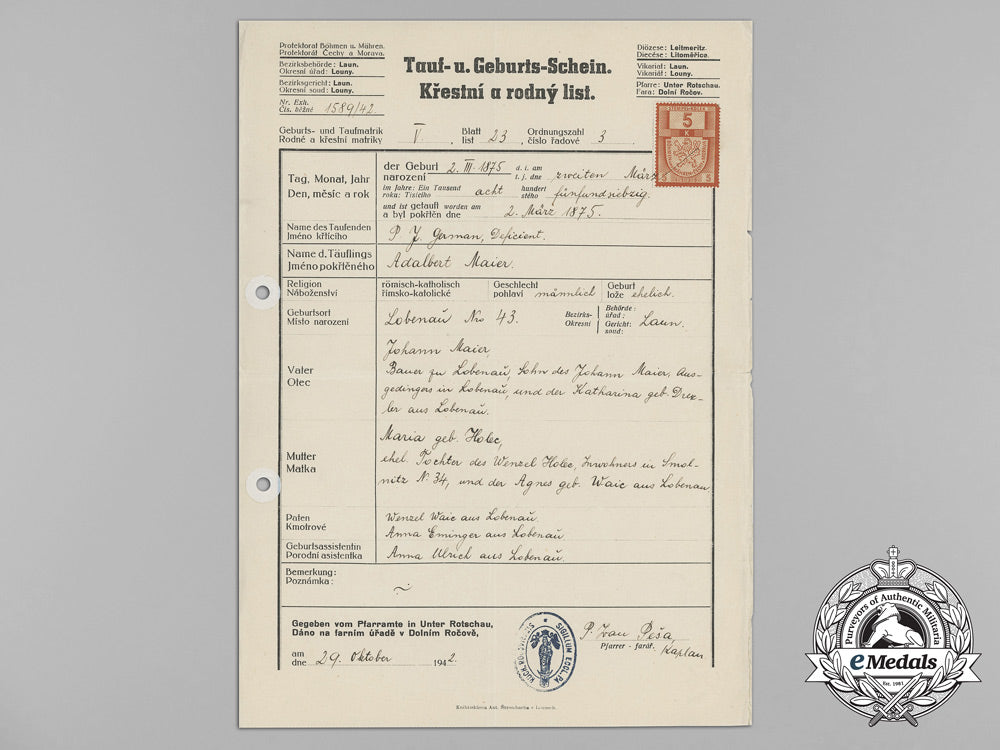 Protektorat Böhmen u. Mähren.
Protektorát Čechy a Morava.
Bezirksbehörde: Laun.
Okresní úřad: Louny.
Bezirksgericht: Laun.
Okresní soud: Louny.
Nr. Exh.
Čís. běžné 1589/42.
Tauf- u. Geburts-Schein.
Křestní a rodný list.
Diözese: Leitmeritz.
Diecése: Litoměřice.
Vikariat: Laun.
Vikariát: Louny.
Pfarre: Unter Rotschau.
Fara: Dolní Ročov.
5
K
Geburts- und Taufmatrik
Rodné a křestní matriky V, Blatt list 23, Ordnungszahl číslo řadové 3
Tag, Monat, Jahr
Den, měsíc a rok
der Geburt narození 2. III. 1875 d. i. am t. j. dne zweiten März
im Jahre: Ein Tausend roku: Tisícího acht hundert stého fünfundsiebzig.
und ist getauft worden am
a byl pokřtěn dne 2. März 1875.
Name des Taufenden
Jméno křtícího
P. J. German, Deficient.
Name d. Täuflings
Jméno pokřtěného
Adalbert Maier.
Religion
Náboženství
römisch-katholisch
římsko-katolické
Geschlecht
pohlaví männlich
Geburt
lože ehelich.
Geburtsort
Místo narození
Lobenaŭ Nro 43.
Bezirks-
Okresní
Behörde:
úřad:
Gericht:
soud: Laun.
Vater
Otec
Johann Maier,
Bauer zu Lobenaŭ, Sohn des Johann Maier, Aus-
gedingers in Lobenaŭ, und der Katharina geb. Drex-
ler aus Lobenaŭ.
Mutter
Matka
Maria geb. Holec,
ehel. Tochter des Wenzel Holec, Inwohners in Smol-
nitz N. 34, und der Agnes geb. Waic aus Lobenau
Paten
Kmotrové
Wenzel Waic aus Lobenaŭ.
Anna Eminger aus Lobenaŭ
Geburtsassistentin
Porodní asistentka
Anna Ulrich aus Lobenaŭ.
Bemerkung:
Poznámka:
Gegeben vom Pfarramte in Unter Rotschau,
Dáno na farním úřadě v Dolním Ročově,
am
dne 29. Oktober 1942.
SIGILLUM ECCL. PA
P. Ivan Peša,
Pfarrer - farář. Kaplan
Purveyors of Authentic Militaria
eMedals
Est. 1981